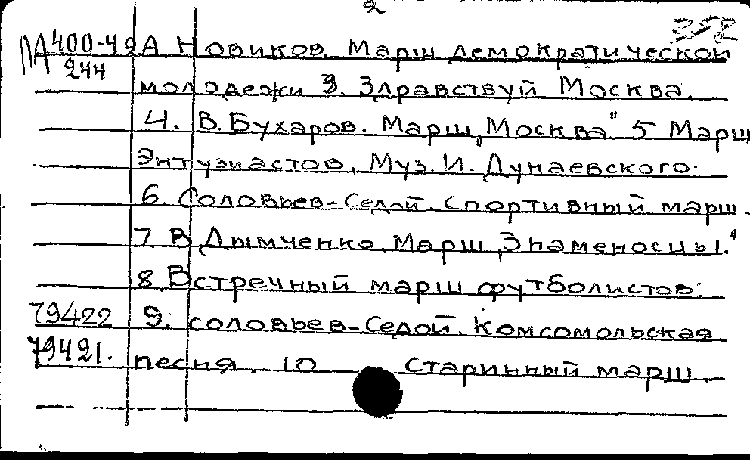 2
352
ПА 400-49 А Новиков. Марш демократической
244 молодежи 3. Здравствуй Москва.
4. В. Бухаров. Марш „Москва" 5 Марш
Энтузиастов, Муз. И. Дунаевского.
6 Соловьев-Седой. Спортивный марш.
7 В Дымченко. Марш „Знаменосцы."
8. Встречный марш футболистов.
79422 9. Соловьев-Седой. Комсомольская
79421. песня. 10 Старинный марш.